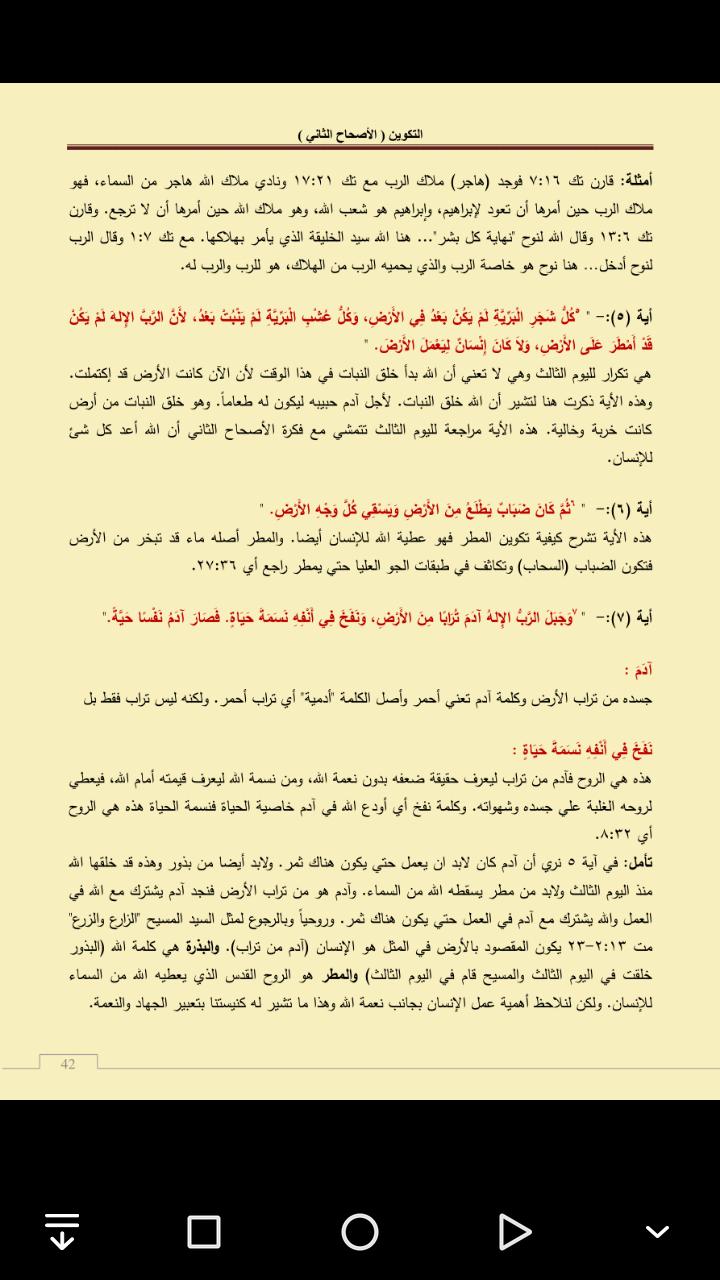 التكوين ( الأصحاح الثاني )
أمثلة: قارن تك ٧:١٦ فوجد (هاجر) ملاك الرب مع تك ١٧:٢١ ونادي ملاك الله هاجر من السماء، فهو
ملاك الرب حين أمرها أن تعود لإبراهيم، وإبراهيم هو شعب الله، وهو ملاك الله حين أمرها أن لا ترجع. وقارن
تك ١٣:٦ وقال الله لنوح "نهاية كل بشر"... هنا الله سيد الخليقة الذي يأمر بهلاكها. مع تك ١:٧ وقال الرب
لنوح أدخل... هنا نوح هو خاصة الرب والذي يحميه الرب من الهلاك، هو للرب والرب له.
أية (٥):- " ٥كُلُّ شَجَرِ الْبَرِّيَّةِ لَمْ يَكُنْ بَعْدُ فِي الأَرْضِ، وَكُلُّ عُشْبِ الْبَرِّيَّةِ لَمْ يَنْبُتْ بَعْدُ، لأَنَّ الرَّبَّ الإِلهَ لَمْ يَكُنْ
قَدْ أَمْطَرَ عَلَى الأَرْضِ، وَلاَ كَانَ إِنْسَانٌ لِيَعْمَلَ الأَرْضَ. "
هي تكرار لليوم الثالث وهي لا تعني أن الله بدأ خلق النبات في هذا الوقت لأن الآن كانت الأرض قد إكتملت.
وهذه الأية ذكرت هنا لتشير أن الله خلق النبات. لأجل آدم حبيبه ليكون له طعاماً. وهو خلق النبات من أرض
كانت خربة وخالية. هذه الأية مراجعة لليوم الثالث تتمشي مع فكرة الأصحاح الثاني أن الله أعد كل شئ
للإنسان.
أية (٦):- " ٦ثُمَّ كَانَ ضَبَابٌ يَطْلَعُ مِنَ الأَرْضِ وَيَسْقِي كُلَّ وَجْهِ الأَرْضِ. "
هذه الأية تشرح كيفية تكوين المطر فهو عطية الله للإنسان أيضا. والمطر أصله ماء قد تبخر من الأرض
فتكون الضباب (السحاب) وتكاثف في طبقات الجو العليا حتي يمطر راجع أي ٢٧:٣٦.
أية (٧):- " ٧وَجَبَلَ الرَّبُّ الإِلهُ آدَمَ تُرَابًا مِنَ الأَرْضِ، وَنَفَخَ فِي أَنْفِهِ نَسَمَةَ حَيَاةٍ. فَصَارَ آدَمُ نَفْسًا حَيَّةً."
آدَمَ :
جسده من تراب الأرض وكلمة آدم تعني أحمر وأصل الكلمة "أدمية" أي تراب أحمر. ولكنه ليس تراب فقط بل
نَفَخَ فِي أَنْفِهِ نَسَمَةَ حَيَاةٍ :
هذه هي الروح فآدم من تراب ليعرف حقيقة ضعفه بدون نعمة الله، ومن نسمة الله ليعرف قيمته أمام الله، فيعطي
لروحه الغلبة علي جسده وشهواته. وكلمة نفخ أي أودع الله في آدم خاصية الحياة فنسمة الحياة هذه هي الروح
أي ٨:٣٢.
تأمل: في آية ٥ نري أن آدم كان لابد ان يعمل حتي يكون هناك ثمر. ولابد أيضا من بذور وهذه قد خلقها الله
منذ اليوم الثالث ولابد من مطر يسقطه الله من السماء. وآدم هو من تراب الأرض فنجد آدم يشترك مع الله في
العمل والله يشترك مع آدم في العمل حتي يكون هناك ثمر. وروحياً وبالرجوع لمثل السيد المسيح "الزارع والزرع"
مت ٢:١٣-٢٣ يكون المقصود بالأرض في المثل هو الإنسان (آدم من تراب). والبذرة هي كلمة الله (البذور
خلقت في اليوم الثالث والمسيح قام في اليوم الثالث) والمطر هو الروح القدس الذي يعطيه الله من السماء
للإنسان. ولكن لنلاحظ أهمية عمل الإنسان بجانب نعمة الله وهذا ما تشير له كنيستنا بتعبير الجهاد والنعمة.
42